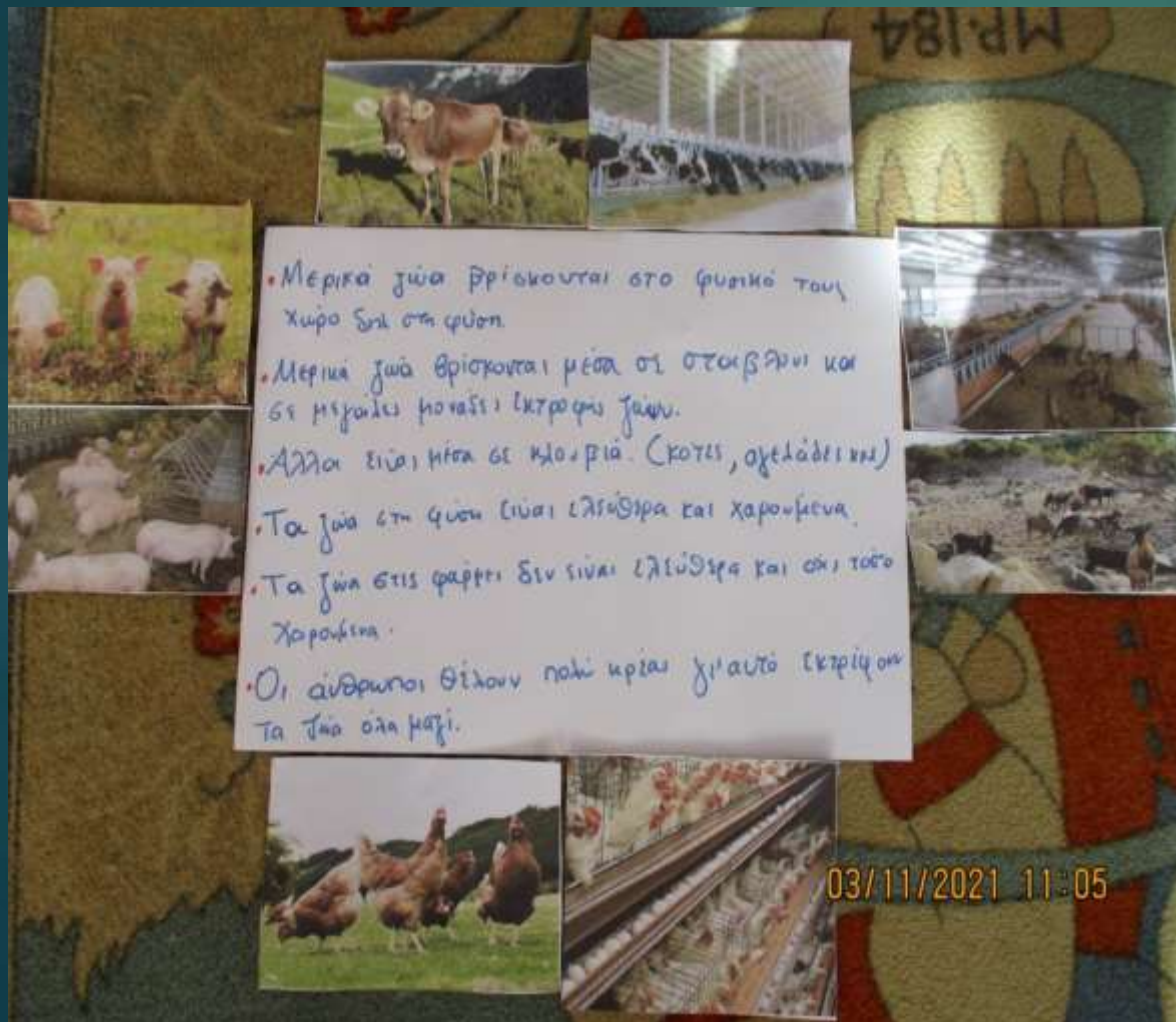 MP.184
• Μερικά ζώα βρίσκονται στο φυσικό τους
χώρο δηλ στη φύση.
• Μερικά ζώα βρίσκονται μέσα σε στάβλους και
σε μεγάλες μονάδες εκτροφής ζώων.
• Άλλα είναι μέσα σε κλουβιά. (κότες, αγελάδες κλπ)
• Τα ζώα στη φύση είναι ελεύθερα και χαρούμενα.
• Τα ζώα στις φάρμες δεν είναι ελεύθερα και όχι τόσο
χαρούμενα.
• Οι άνθρωποι θέλουν πολύ κρέας γι' αυτό εκτρέφουν
τα ζώα όλα μαζί.
03/11/2021 11:05